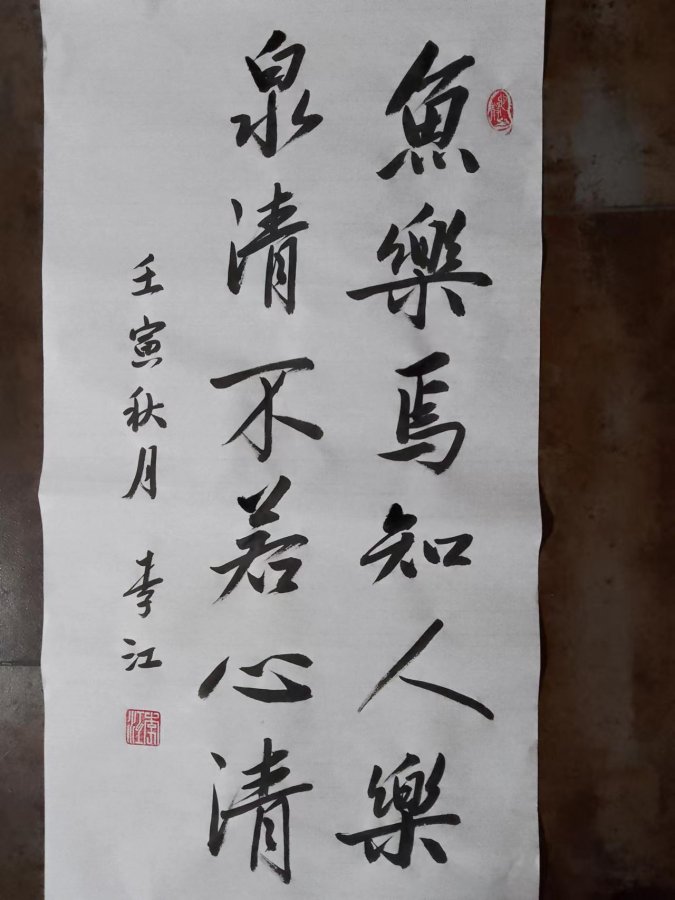 魚樂焉知人樂
泉清不若心清
壬寅秋月 李江